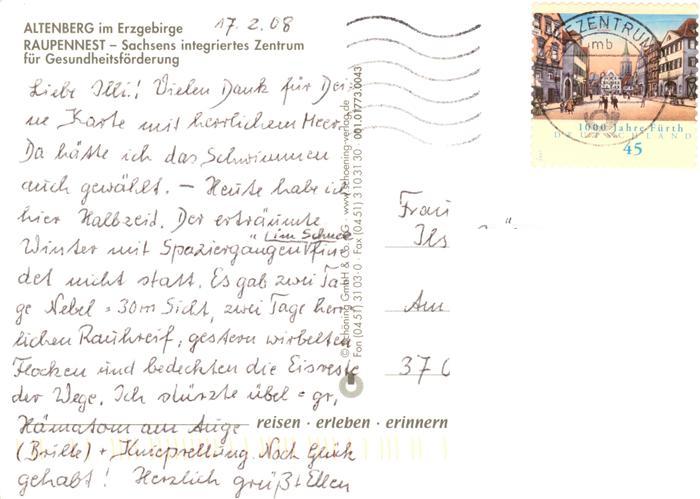 ALTENBERG im Erzgebirge
RAUPENNEST – Sachsens integriertes Zentrum
für Gesundheitsförderung
17.2.08
Liebe Illi! Vielen Dank für Dei-
ne Karte mit herrlichem Meer.
Da hätte ich das Schwimmen
auch gewählt. – Heute habe ich
hier Halbzeid. Der erträumte
Winter mit Spaziergängen im Schnee fin-
det nicht statt. Es gab zwei Ta-
ge Nebel = 30m Sicht, zwei Tage herr-
lichen Rauhreif, gestern wirbelten
Flocken und bedeckten die Eisreste
der Wege. Ich stürzte übel = gr.
Hämatom am Auge
(Brille) + Knieprellung. Noch Glück
gehabt! Herzlich grüßt Ellen
reisen · erleben · erinnern
© Schöning GmbH & Co. KG · www.schoening-verlag.de
Fon (0451) 3103-0 · Fax (0451) 3103130 · 001.01773.0043
1000 Jahre Fürth
DEUTSCHLAND
45
EZENTRUM
mb
Frau
Ils
Am
37